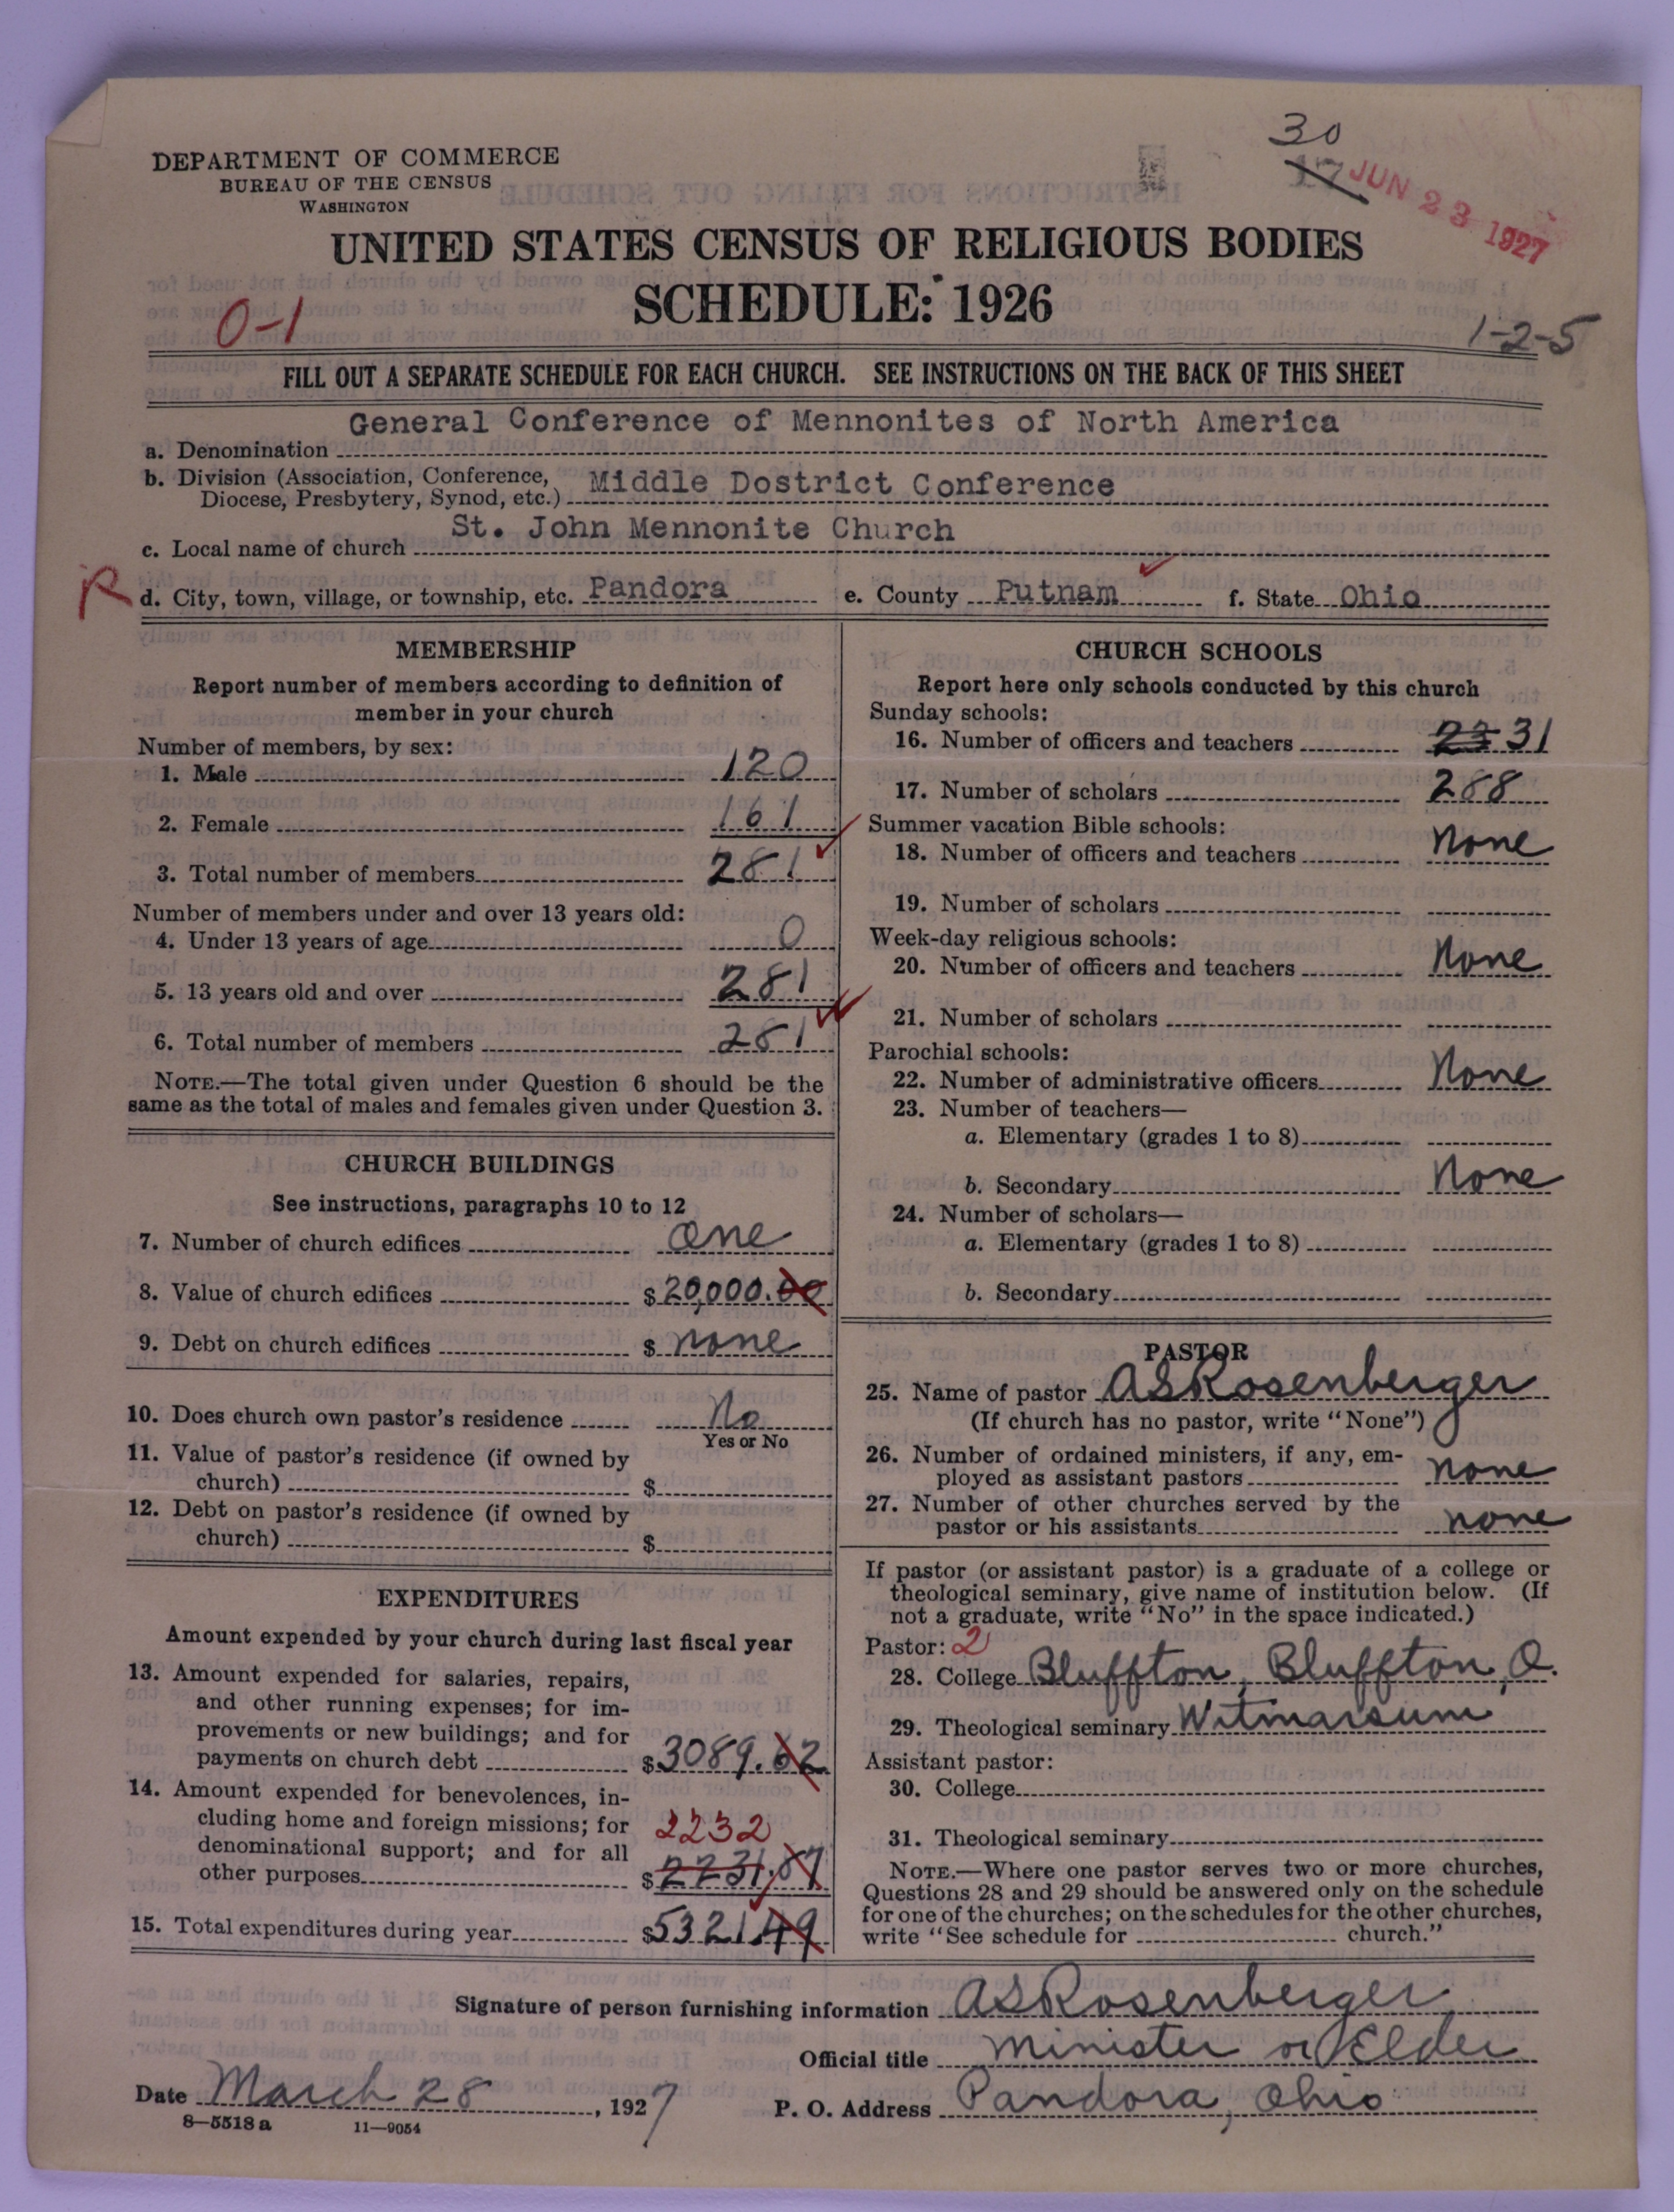 30
17 JUN 23 1927
DEPARTMENT OF COMMERCE
BUREAU OF THE CENSUS
WASHINGTON
UNITED STATES CENSUS OF RELIGIOUS BODIES
SCHEDULE: 1926
0-1
1-2-5
FILL OUT A SEPARATE SCHEDULE FOR EACH CHURCH. SEE INSTRUCTIONS ON THE BACK OF THIS SHEET
a. Denomination General Conference of Mennonites of North America
b. Division (Association, Conference, Diocese, Presbytery, Synod, etc.) Middle Dostrict Conference
c. Local name of church St. John Mennonite Church
R
d. City, town, village, or township, etc. Pandora e. County Putnam f. State Ohio
MEMBERSHIP
Report number of members according to definition of
member in your church
Number of members, by sex:
1. Male 120
2. Female 161
3. Total number of members 281
Number of members under and over 13 years old:
4. Under 13 years of age 0
5. 13 years old and over 281
6. Total number of members 281
NOTE.—The total given under Question 6 should be the
same as the total of males and females given under Question 3.
CHURCH BUILDINGS
See instructions, paragraphs 10 to 12
7. Number of church edifices One
8. Value of church edifices $20,000.00
9. Debt on church edifices $ none
10. Does church own pastor's residence No
Yes or No
11. Value of pastor's residence (if owned by
church) $
12. Debt on pastor's residence (if owned by
church) $
EXPENDITURES
Amount expended by your church during last fiscal year
13. Amount expended for salaries, repairs,
and other running expenses; for im-
provements or new buildings; and for
payments on church debt $3089.62
14. Amount expended for benevolences, in-
cluding home and foreign missions; for
denominational support; and for all 2232
other purposes $2231.87
15. Total expenditures during year $5321.49
CHURCH SCHOOLS
Report here only schools conducted by this church
Sunday schools:
16. Number of officers and teachers 31
17. Number of scholars 288
Summer vacation Bible schools:
18. Number of officers and teachers None
19. Number of scholars
Week-day religious schools:
20. Number of officers and teachers None
21. Number of scholars
Parochial schools:
22. Number of administrative officers None
23. Number of teachers—
a. Elementary (grades 1 to 8)
b. Secondary None
24. Number of scholars—
a. Elementary (grades 1 to 8)
b. Secondary
PASTOR
25. Name of pastor A S Rosenberger
(If church has no pastor, write "None")
26. Number of ordained ministers, if any, em-
ployed as assistant pastors none
27. Number of other churches served by the
pastor or his assistants none
If pastor (or assistant pastor) is a graduate of a college or
theological seminary, give name of institution below. (If
not a graduate, write "No" in the space indicated.)
Pastor: 2
28. College Bluffton, Bluffton, O.
29. Theological seminary Witmarsum
Assistant pastor:
30. College
31. Theological seminary
NOTE.—Where one pastor serves two or more churches,
Questions 28 and 29 should be answered only on the schedule
for one of the churches; on the schedules for the other churches,
write "See schedule for church."
Signature of person furnishing information A S Rosenberger
Official title Minister or Elder
Date March 28, 1927
P. O. Address Pandora, Ohio
8—5518 a 11—9054